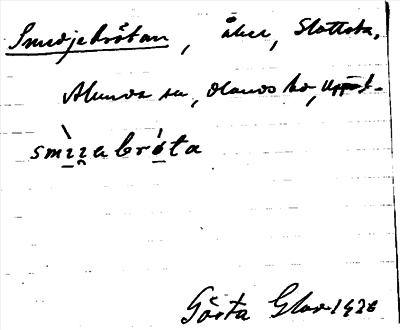 Smedjebråtan, åker, Slottsta,
Alunda sn, Olands hd, Uppl.
smìzebróta
Gösta Glas 1926